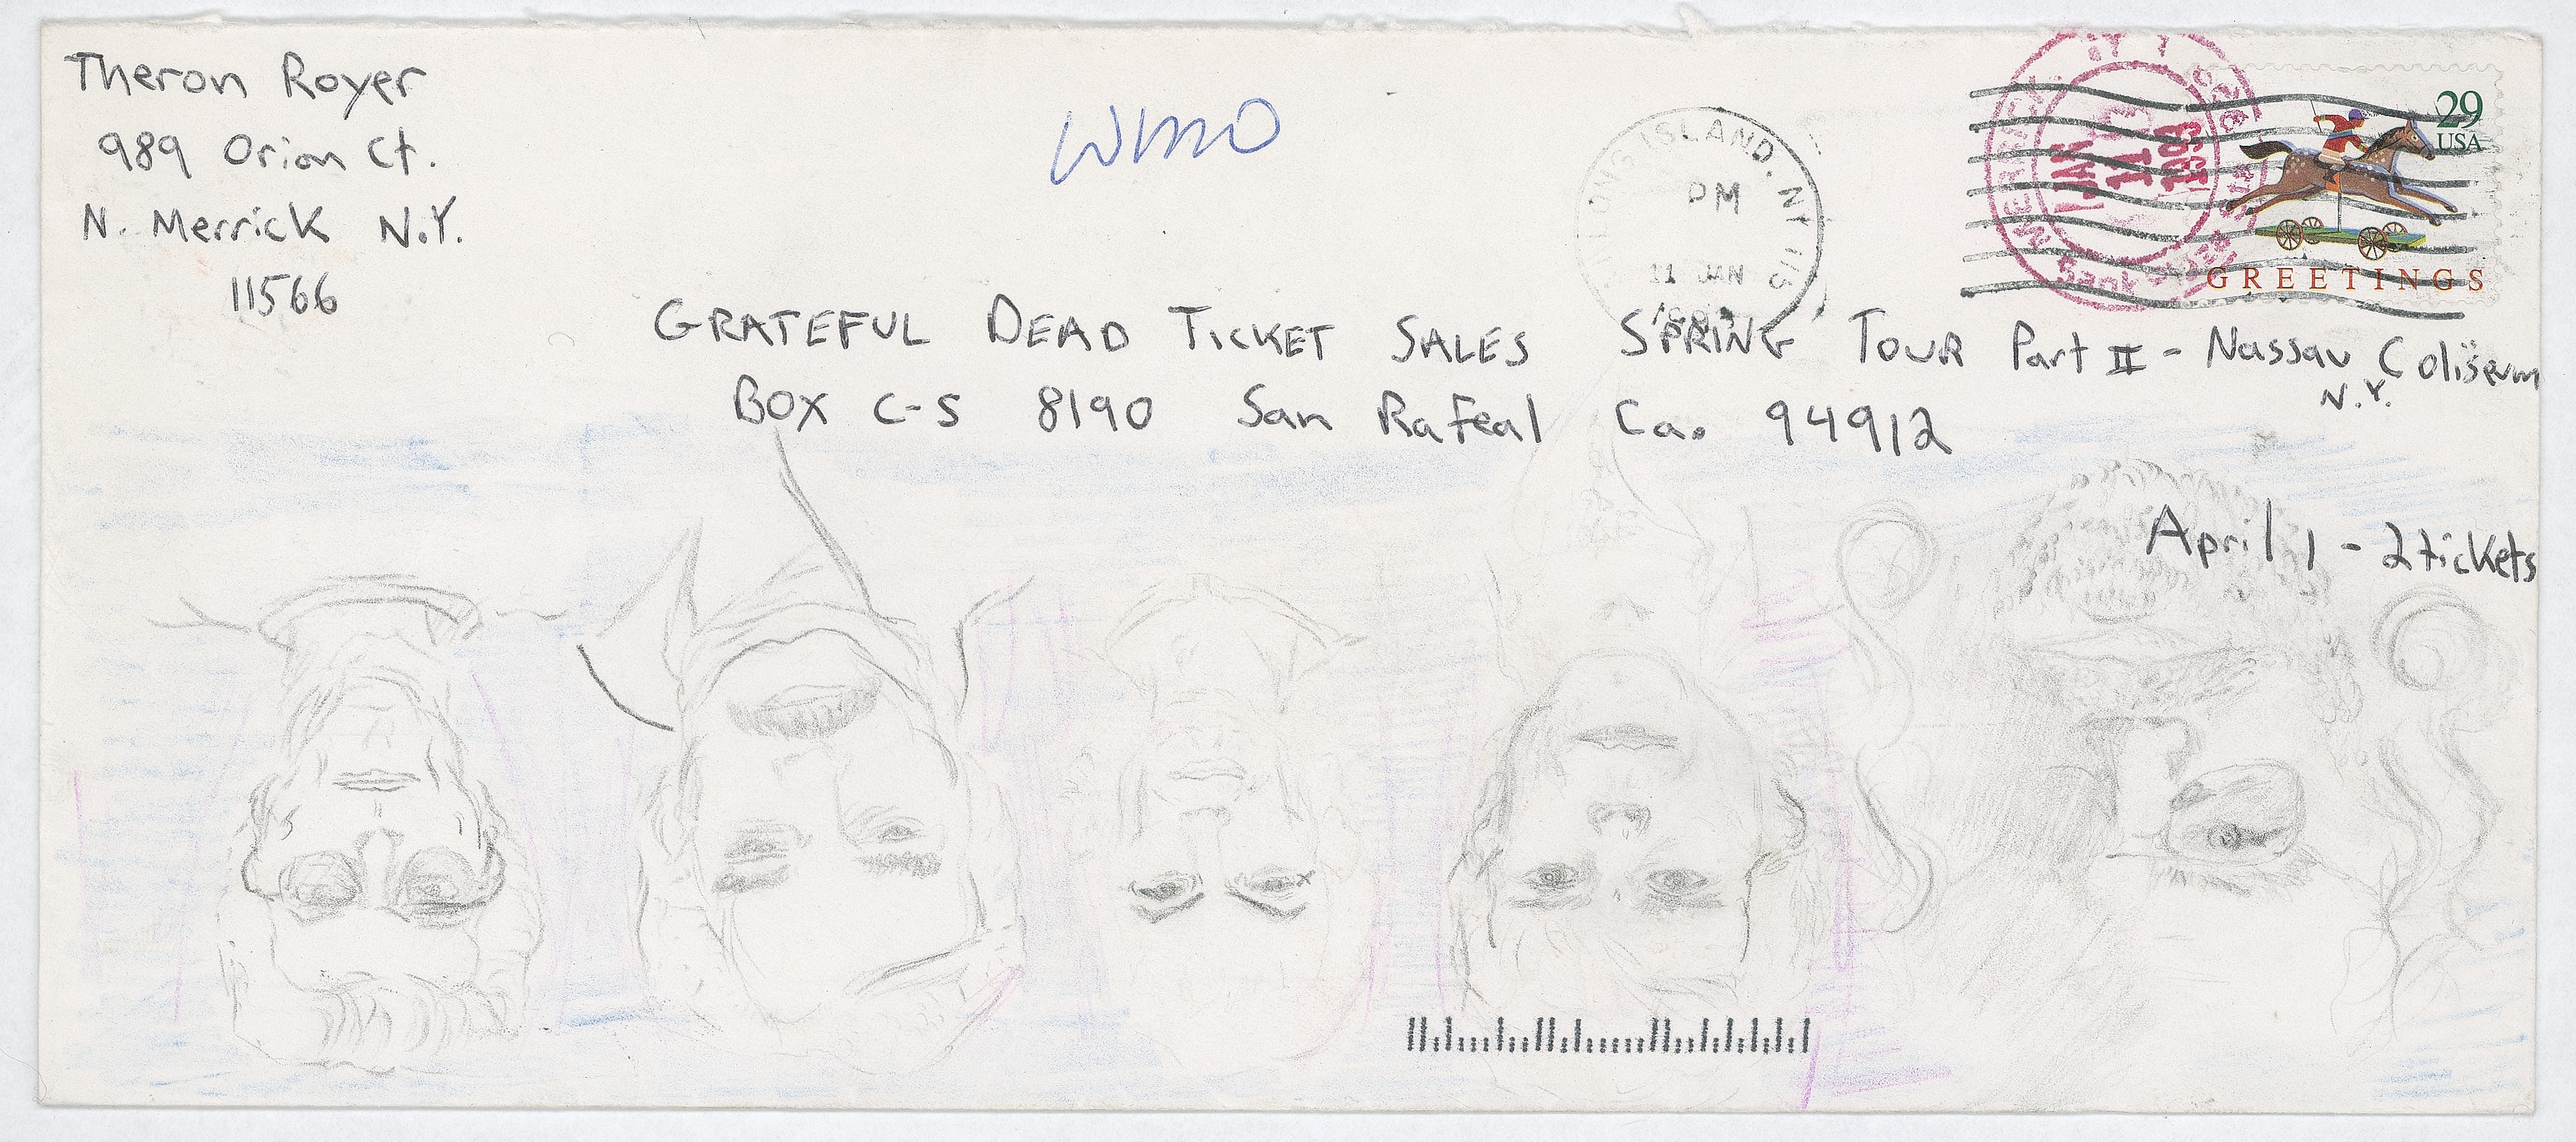 Theron Royer
989 Orion Ct.
N. Merrick N.Y.
11566
WMO
LONG ISLAND, NY 115
PM
11 JAN
JAN 11 1993
29
USA
GREETINGS
GRATEFUL DEAD TICKET SALES SPRING TOUR Part II - Nassau Coliseum
N.Y.
BOX C-S 8190 San Rafeal Ca. 94912
April 1 - 2 tickets